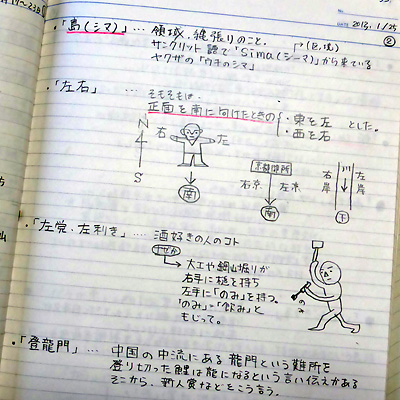 DATE 2013.1/25
②
・「島(シマ)」… 領域、縄張りのこと。
(区境)
サンクリット語で「Sima(シーマ)」から来ている
ヤクザの「ウチのシマ」
・「左右」… そもそもは、
正面を南に向けたときの
・東を左
・西を右
とした。
N
S
右
左
南
京都御所
右京
左京
南
川
右岸
左岸
下
・「左党、左利き」… 酒好きの人のコト
なぜか
大工や鉱山掘りが
右手に槌を持ち
左手に「のみ」を持つ。
「のみ」=「飲み」と
もじって。
のみ
・「登龍門」… 中国の中流にある龍門という難所を
登り切った鯉は龍になるという言い伝えがある
そこから、新人賞などをこう言う。